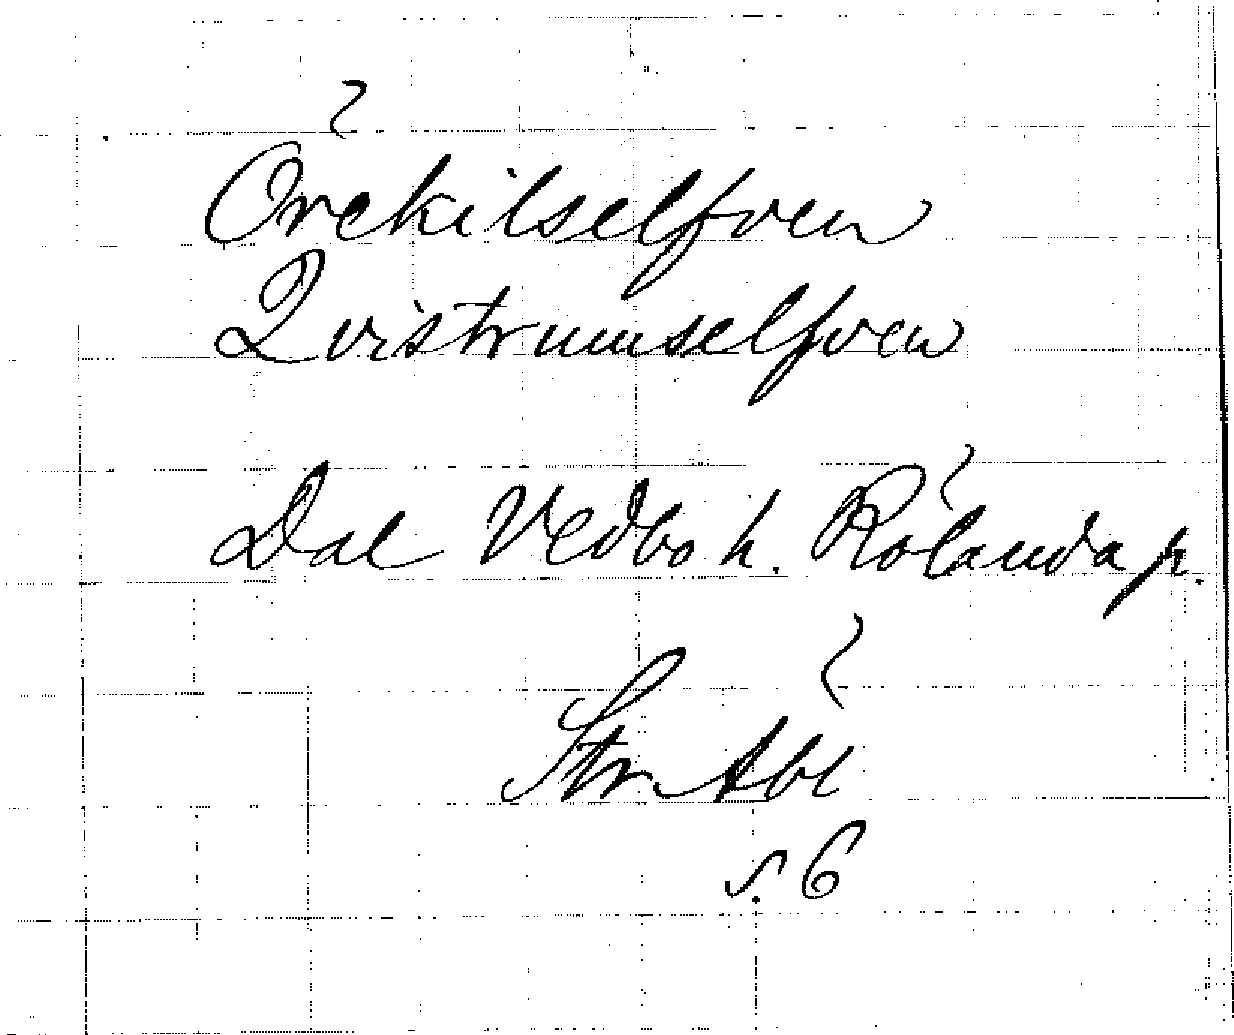 Örekilselfven
Qvistrumselfven
Dal Vedbo h. Rölanda p.
Str Åbl
s. 6